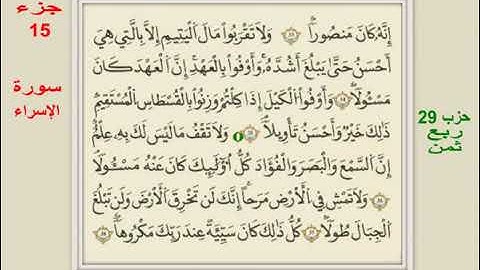 جزء
15
سورة
الإسراء
إِنَّهُۥ كَانَ مَنصُوراٗ وَلَا تَقْرَبُواْ مَالَ اَلْيَتِيمِ إِلَّا بِالتِے هِيَ
أَحْسَنُ حَتَّىٰ يَبْلُغَ أَشُدَّهُۥ وَأَوْفُواْ بِالْعَهْدِ إِنَّ اَلْعَهْدَ كَانَ
مَسْـُٔولاٗ وَأَوْفُواْ اُلْكَيْلَ إِذَا كِلْتُمْ وَزِنُواْ بِالْقُسْطَاسِ اِلْمُسْتَقِيمِ
ذَٰلِكَ خَيْرٞ وَأَحْسَنُ تَأْوِيلاٗ وَلَا تَقْفُ مَا لَيْسَ لَكَ بِهِۦ عِلْمٌ
إِنَّ اَلسَّمْعَ وَالْبَصَرَ وَالْفُؤَادَ كُلُّ أُوْلَٰٓئِكَ كَانَ عَنْهُ مَسْـُٔولاٗ
وَلَا تَمْشِ فِے اِلْأَرْضِ مَرَحاً إِنَّكَ لَن تَخْرِقَ اَلْأَرْضَ وَلَن تَبْلُغَ
اَلْجِبَالَ طُولاٗ كُلُّ ذَٰلِكَ كَانَ سَيِّئَةً عِندَ رَبِّكَ مَكْرُوهاٗ
حزب 29
ربع
ثمن